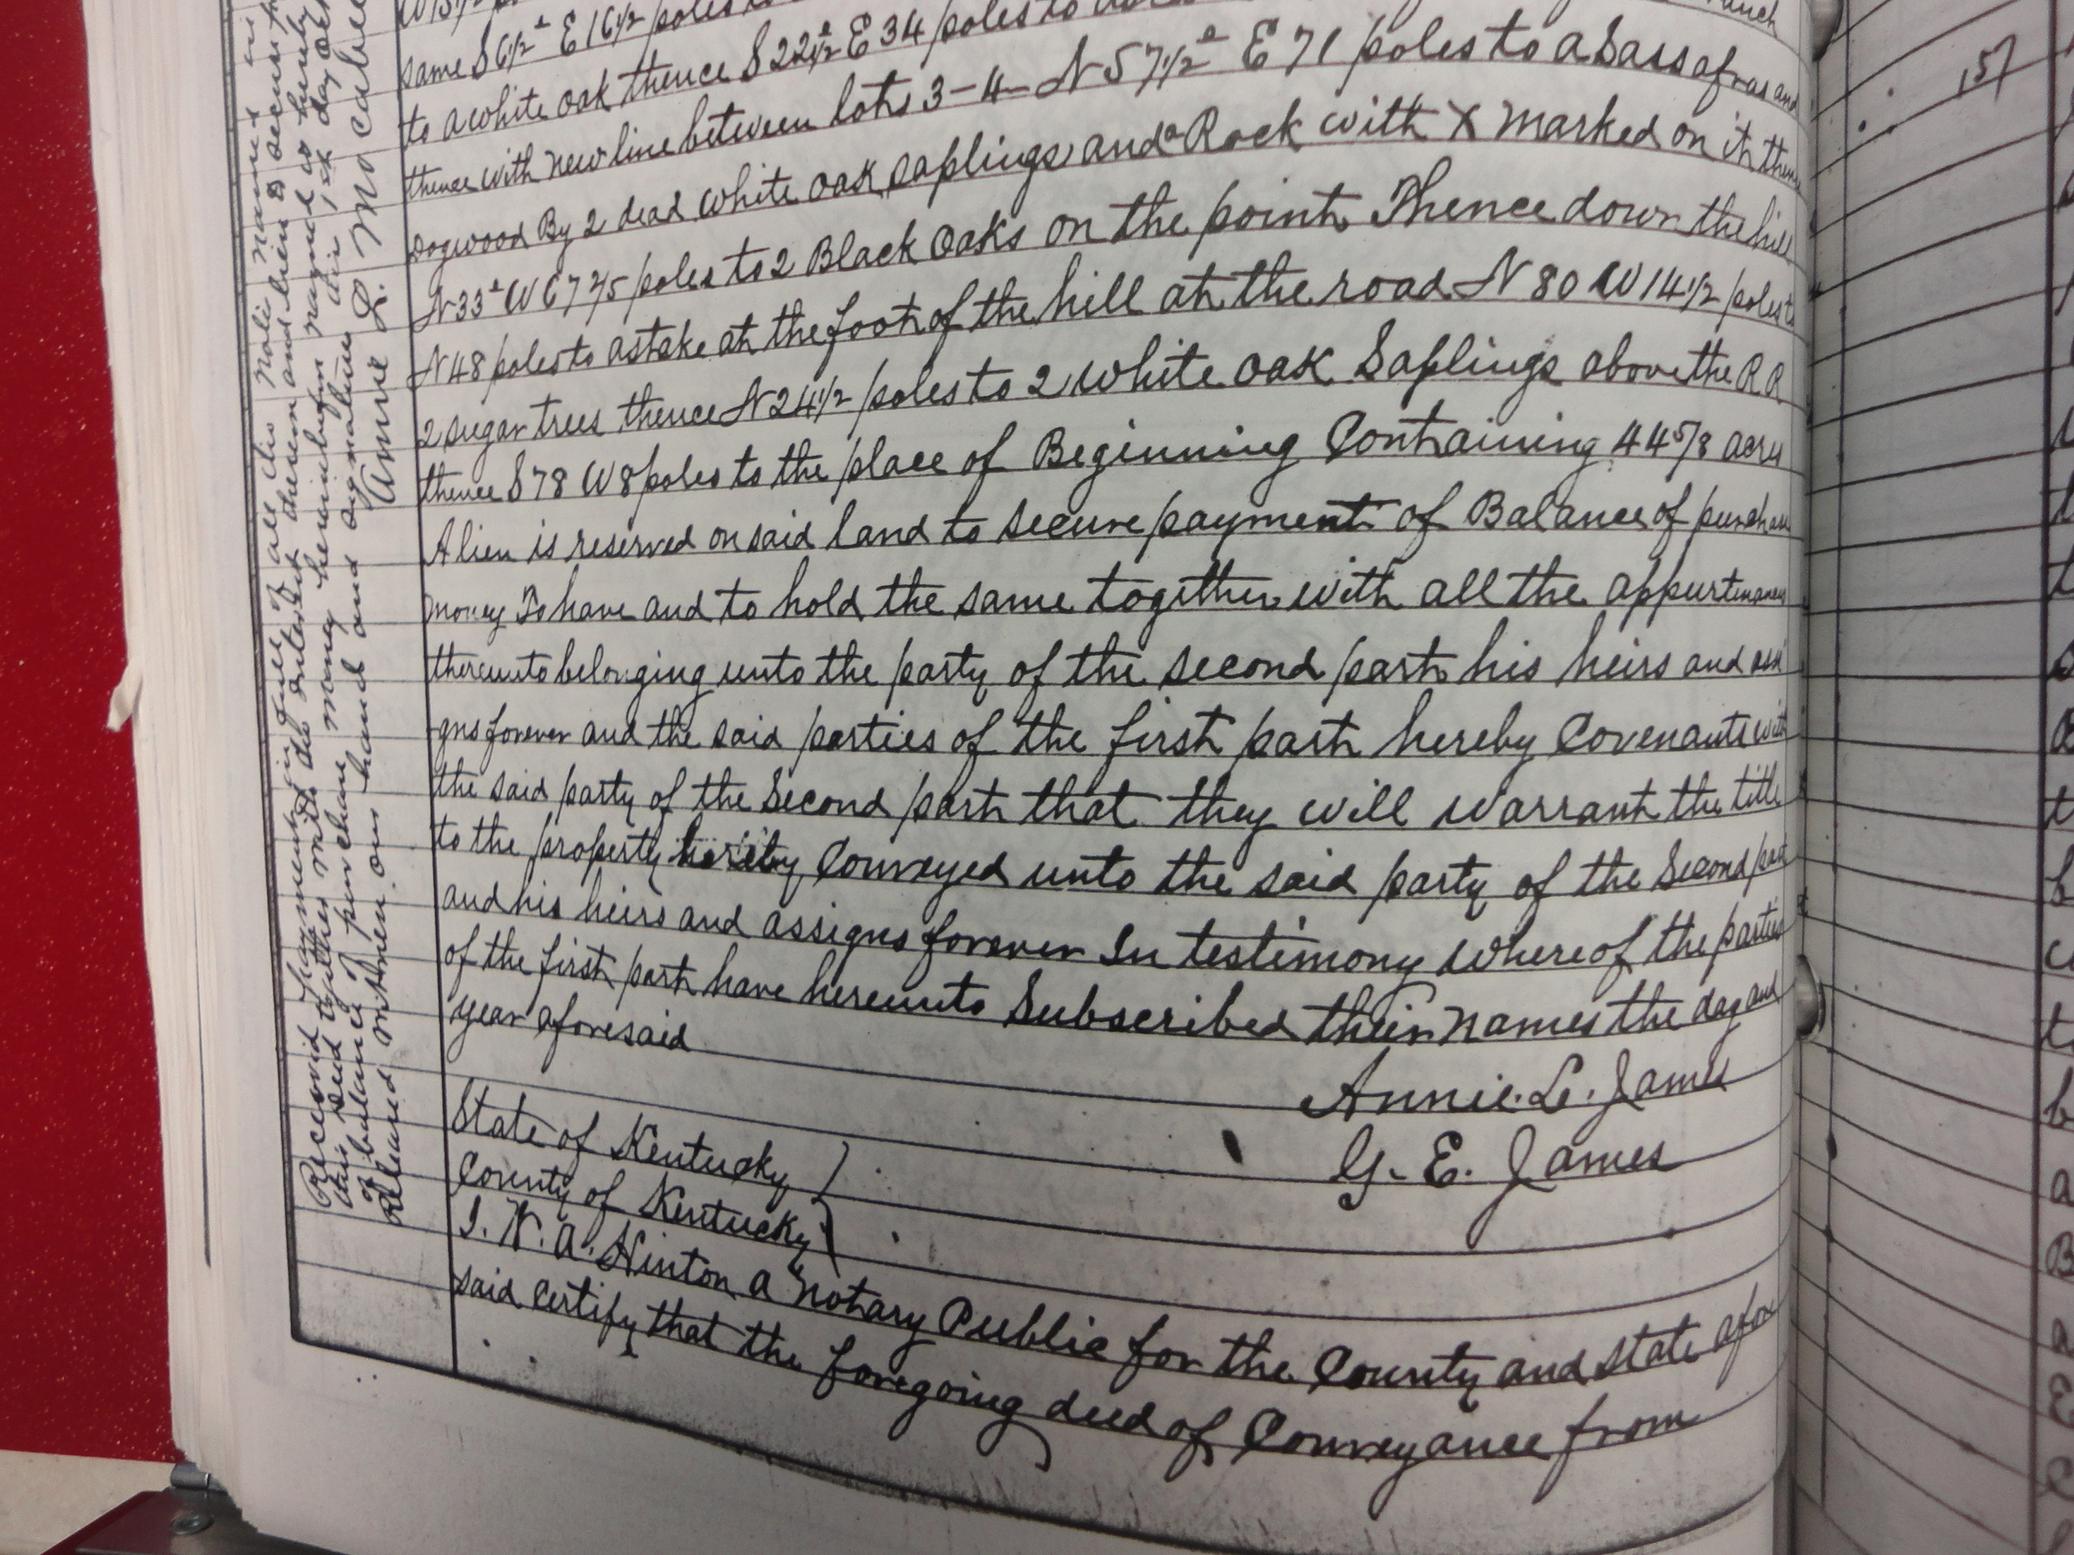 same S 6½° E 16½ poles to
to a white oak thence S 22½ E 34 poles to
thence with new line between lots 3-4- N 57½° E 71 poles to a Sassafras and
Dogwood By 2 dead white oak saplings and a Rock with X marked on it thence
N 33° W 67 2/5 poles to 2 Black Oaks on the point Thence down the hill
N 48 poles to a stake at the foot of the hill at the road N 80 W 14½ poles to
2 sugar trees thence N 24½ poles to 2 white oak Saplings above the R R
thence S 78 W 8 poles to the place of Beginning Containing 44 5/8 acres
A lien is reserved on said land to secure payment of Balance of purchase
money To have and to hold the same together with all the appurtenances
thereunto belonging unto the party of the second part his heirs and assi
gns forever and the said parties of the first part hereby Covenants with
the said party of the Second part that they will warrant the title
to the property hereby Conveyed unto the said party of the Second part
and his heirs and assigns forever In testimony whereof the parties
of the first part have hereunto Subscribed their names the day and
year aforesaid
Annie. L. James
G. E. James
State of Kentucky
County of Kentucky
I. W. A. Hinton a Notary Public for the County and State afore
said certify that the foregoing deed of Conveyance from
Received payment in full of all the notes named in
this deed together with the interest thereon and lien to secure
of balance of purchase money hereinbefore named is hereby
Released witness our hand and signature this 1st day
Annie L. McCabe
157